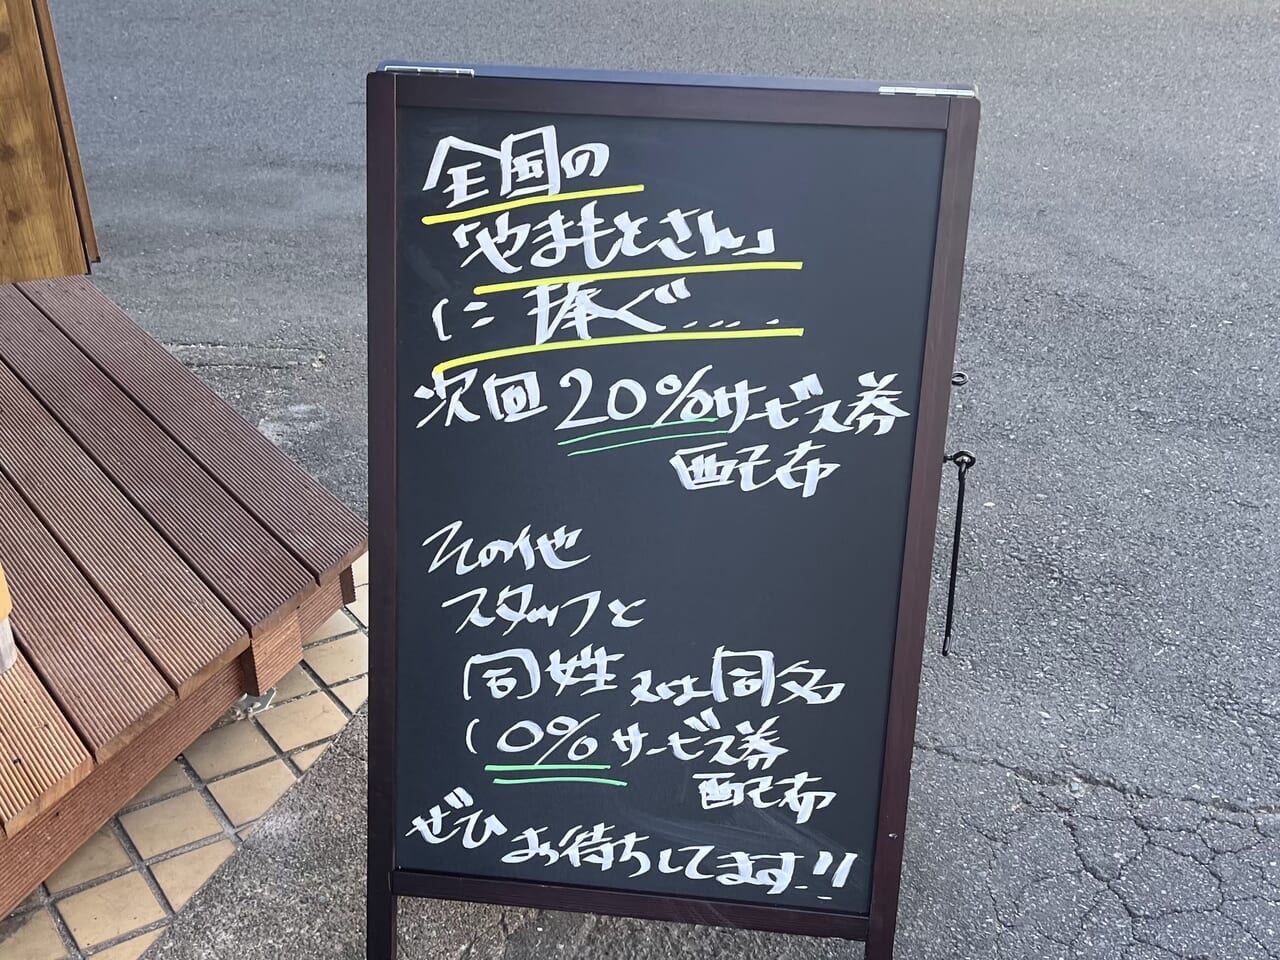 全国の
「やまもとさん」
に捧ぐ.....
次回20%サービス券
配布
その他
スタッフと
同姓又は同名
10%サービス券
配布
ぜひお待ちしてます!!